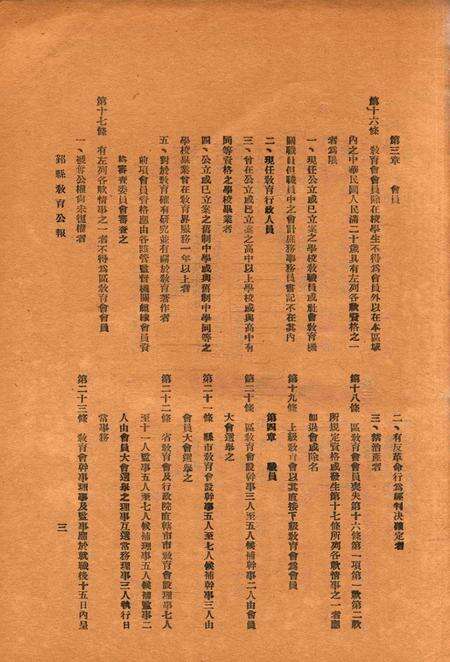 第三章　會員
第十六條　敎育會會員除在校學生不得為會員外以在本區域
內之中華民國人民滿二十歲具有左列各款資格之一
者為限
一、現任公立或已立案之學校敎職員或社會敎育機
關職員但職員中之會計庶務事務員書記不在其內
二、現任敎育行政人員
三、曾在公立或已立案之高中以上學校或與高中有
同等資格之學校畢業者
四、公立或已立案之舊制中學或與舊制中學同等之
學校畢業曾在敎育界服務一年以上者
五、對於敎育確有研究並有關於敎育著作者
前項會員資格應由各該管監督機關組織會員資
格審查委員會審查之
第十七條　有左列各款情事之一者不得為區敎育會會員
一、褫奪公權尚未復權者
鄞縣敎育公報
二、有反革命行為經判決確定者
三、禁治產者
第十八條　區敎育會會員喪失第十六條第一項第一款第二款
所規定資格或發生第十七條所列各款情事之一者應
即退會或除名
第十九條　上級敎育會以其直接下級敎育會為會員
第四章　職員
第二十條　區敎育會設幹事三人至五人候補幹事二人由會員
大會選舉之
第二十一條　縣市敎育會設幹事五人至七人候補幹事三人由
會員大會選舉之
第二十二條　省敎育會及行政院直轄市市敎育會設理事七人
至十一人監事五人至七人候補理事五人候補監事二
人由會員大會選舉之理事互選常務理事三人執行日
常事務
第二十三條　敎育會幹事理事及監事應於就職後十五日內呈
三